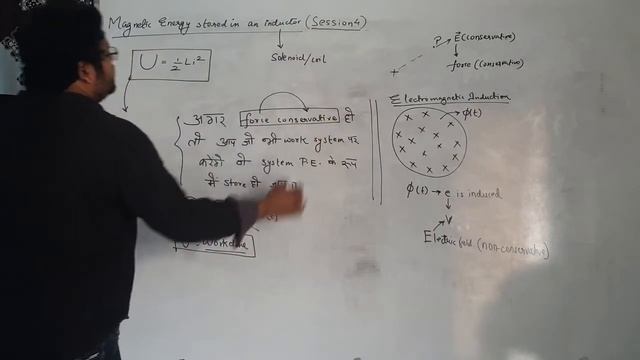 Magnetic Energy stored in an inductor (Session 4)
Solenoid/coil
U = 1/2 Li²
अगर force conservative हो
तो आप जो भी work system पर
करोगे वो system P.E. के रूप
में store हो
U = Workdone
P
E (conservative)
force (conservative)
Electromagnetic Induction
ϕ(t)
ϕ(t) → e is induced
V
Electric field (non-conservative)